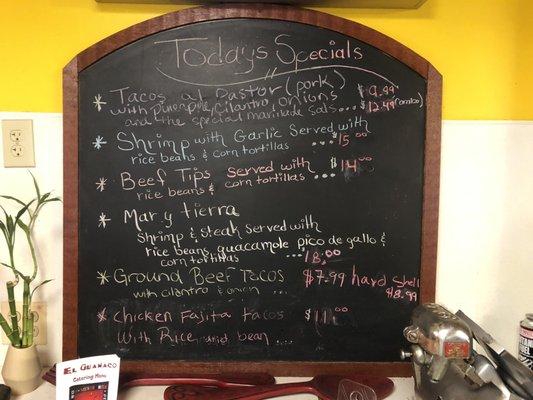 Todays Specials
Tacos al Pastor (pork) $9.99
with pineapple, cilantro onions $12.99
and the special marinade salsa...
Shrimp with Garlic Served with
rice beans & corn tortillas ... $15.00
Beef Tips served with $14.00
rice beans & corn tortillas ....
Mar y tierra
Shrimp & steak served with
rice beans, guacamole pico de gallo &
corn tortillas ... 18.00
Ground Beef Tacos $7.99 hard shell
with cilantro & onion ... $8.99
chicken Fajita tacos $11.00
with Rice and bean ....
El Guanaco